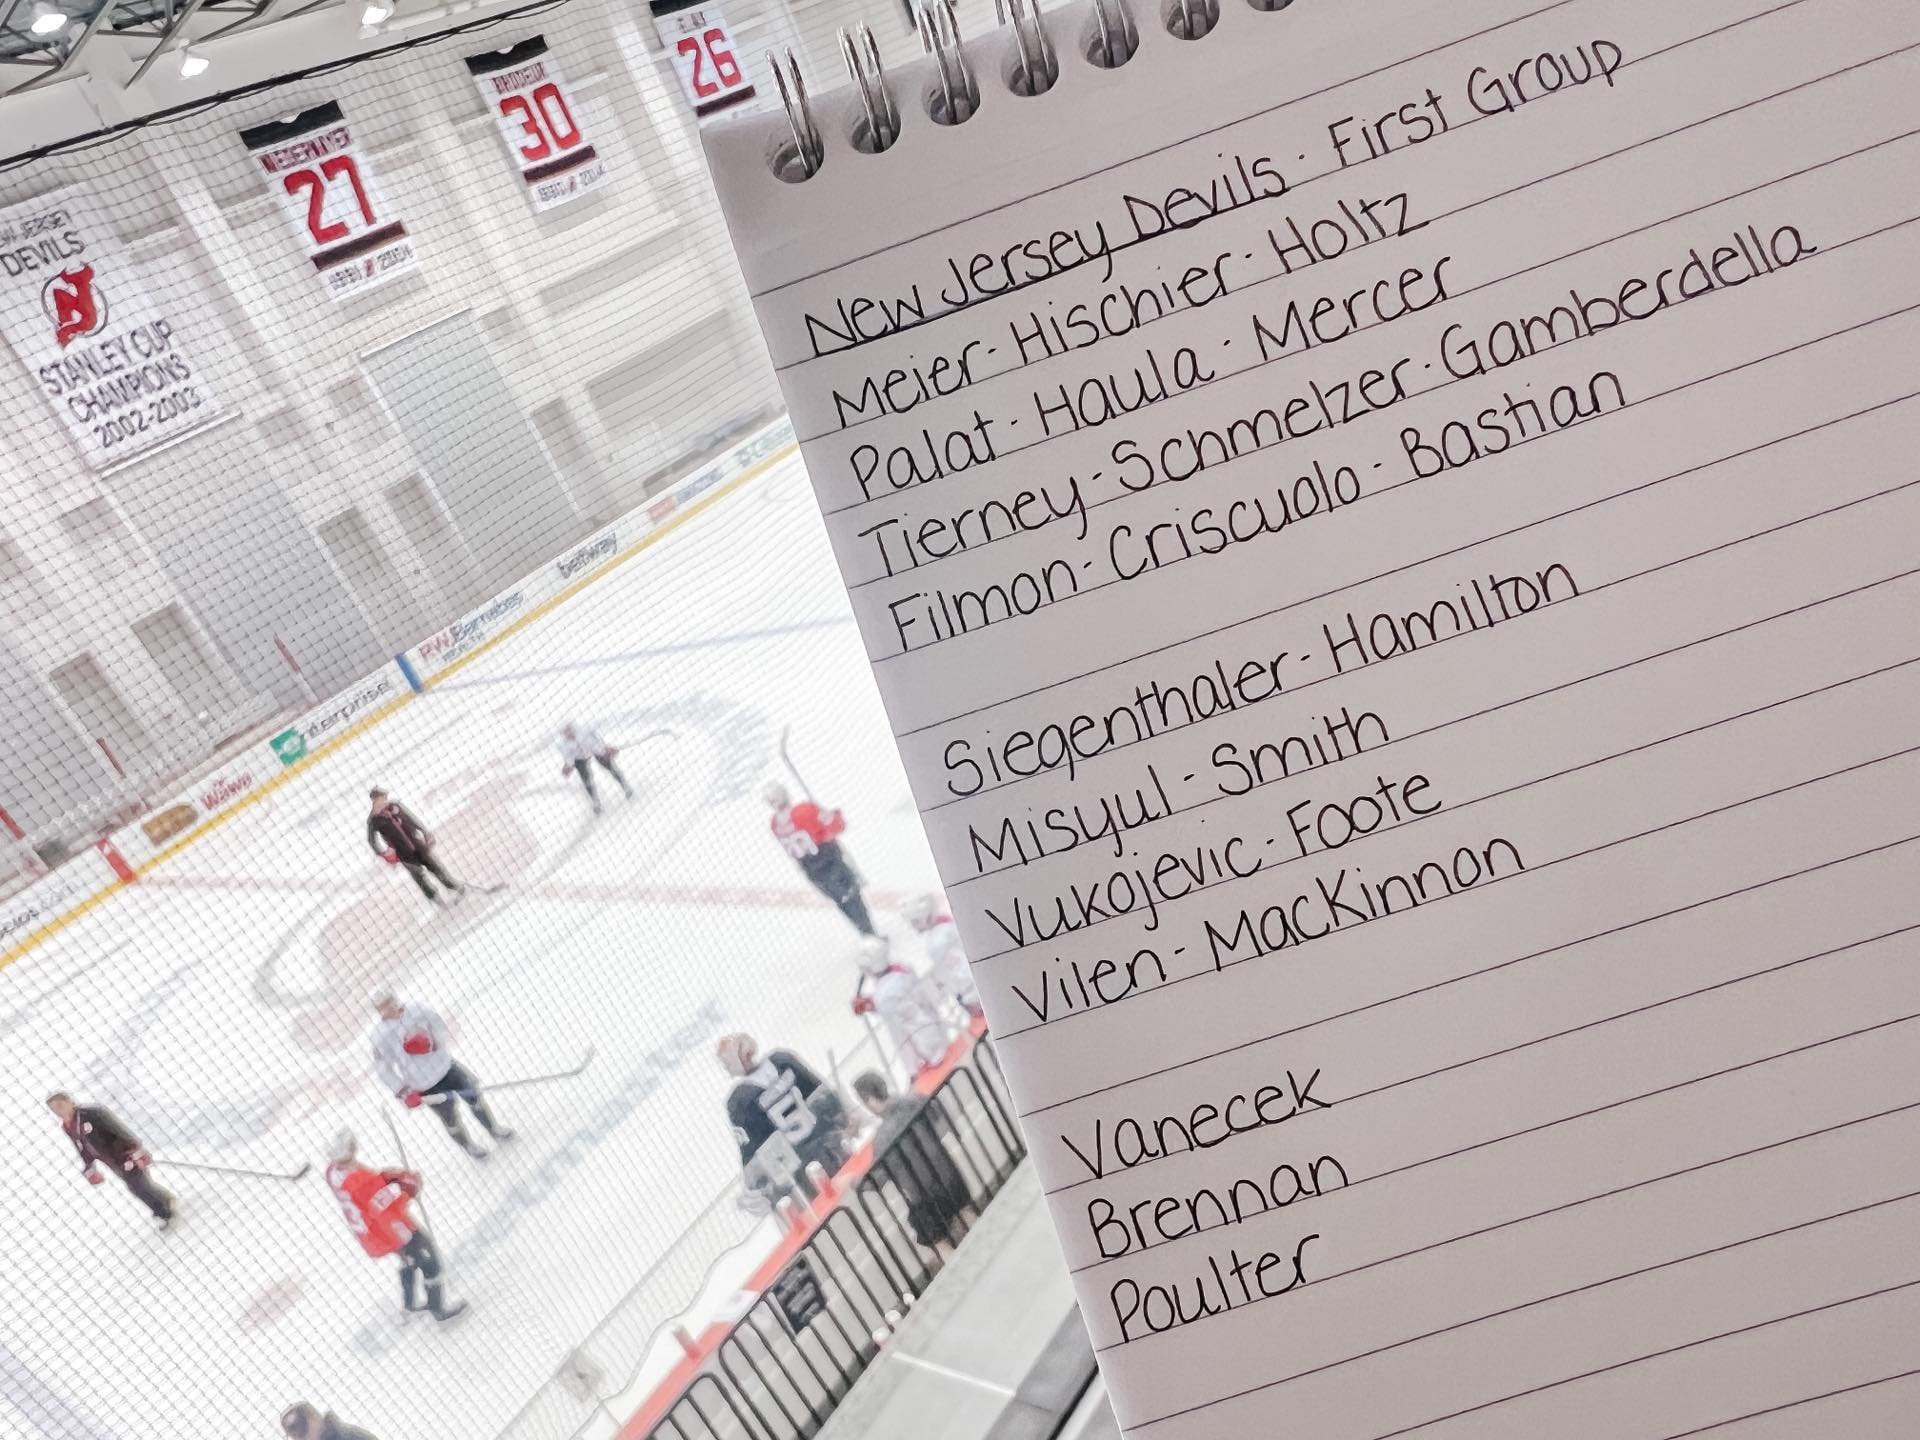 New Jersey Devils · First Group
Meier · Hischier · Holtz
Palat · Haula · Mercer
Tierney · Schmelzer · Gamberdella
Filmon · Criscuolo · Bastian
Siegenthaler · Hamilton
Misyul · Smith
Vukojevic · Foote
Vilen · MacKinnon
Vanecek
Brennan
Poulter
NEW JERSEY
DEVILS
STANLEY CUP
CHAMPIONS
2002-2003
NIEDERMAYER
27
BRODEUR
30
26
betway
RWJBarnabas
HEALTH
enterprise
Wawa
5